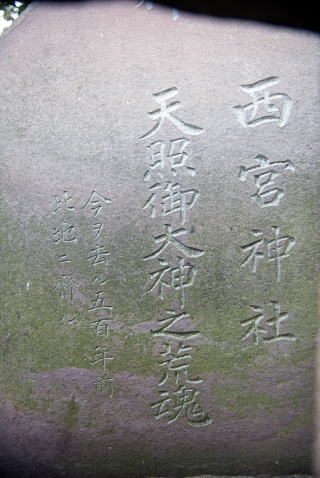 西宮神社
天照御大神之荒魂
今ヲ去ル五百年前
此地ニ齋ル